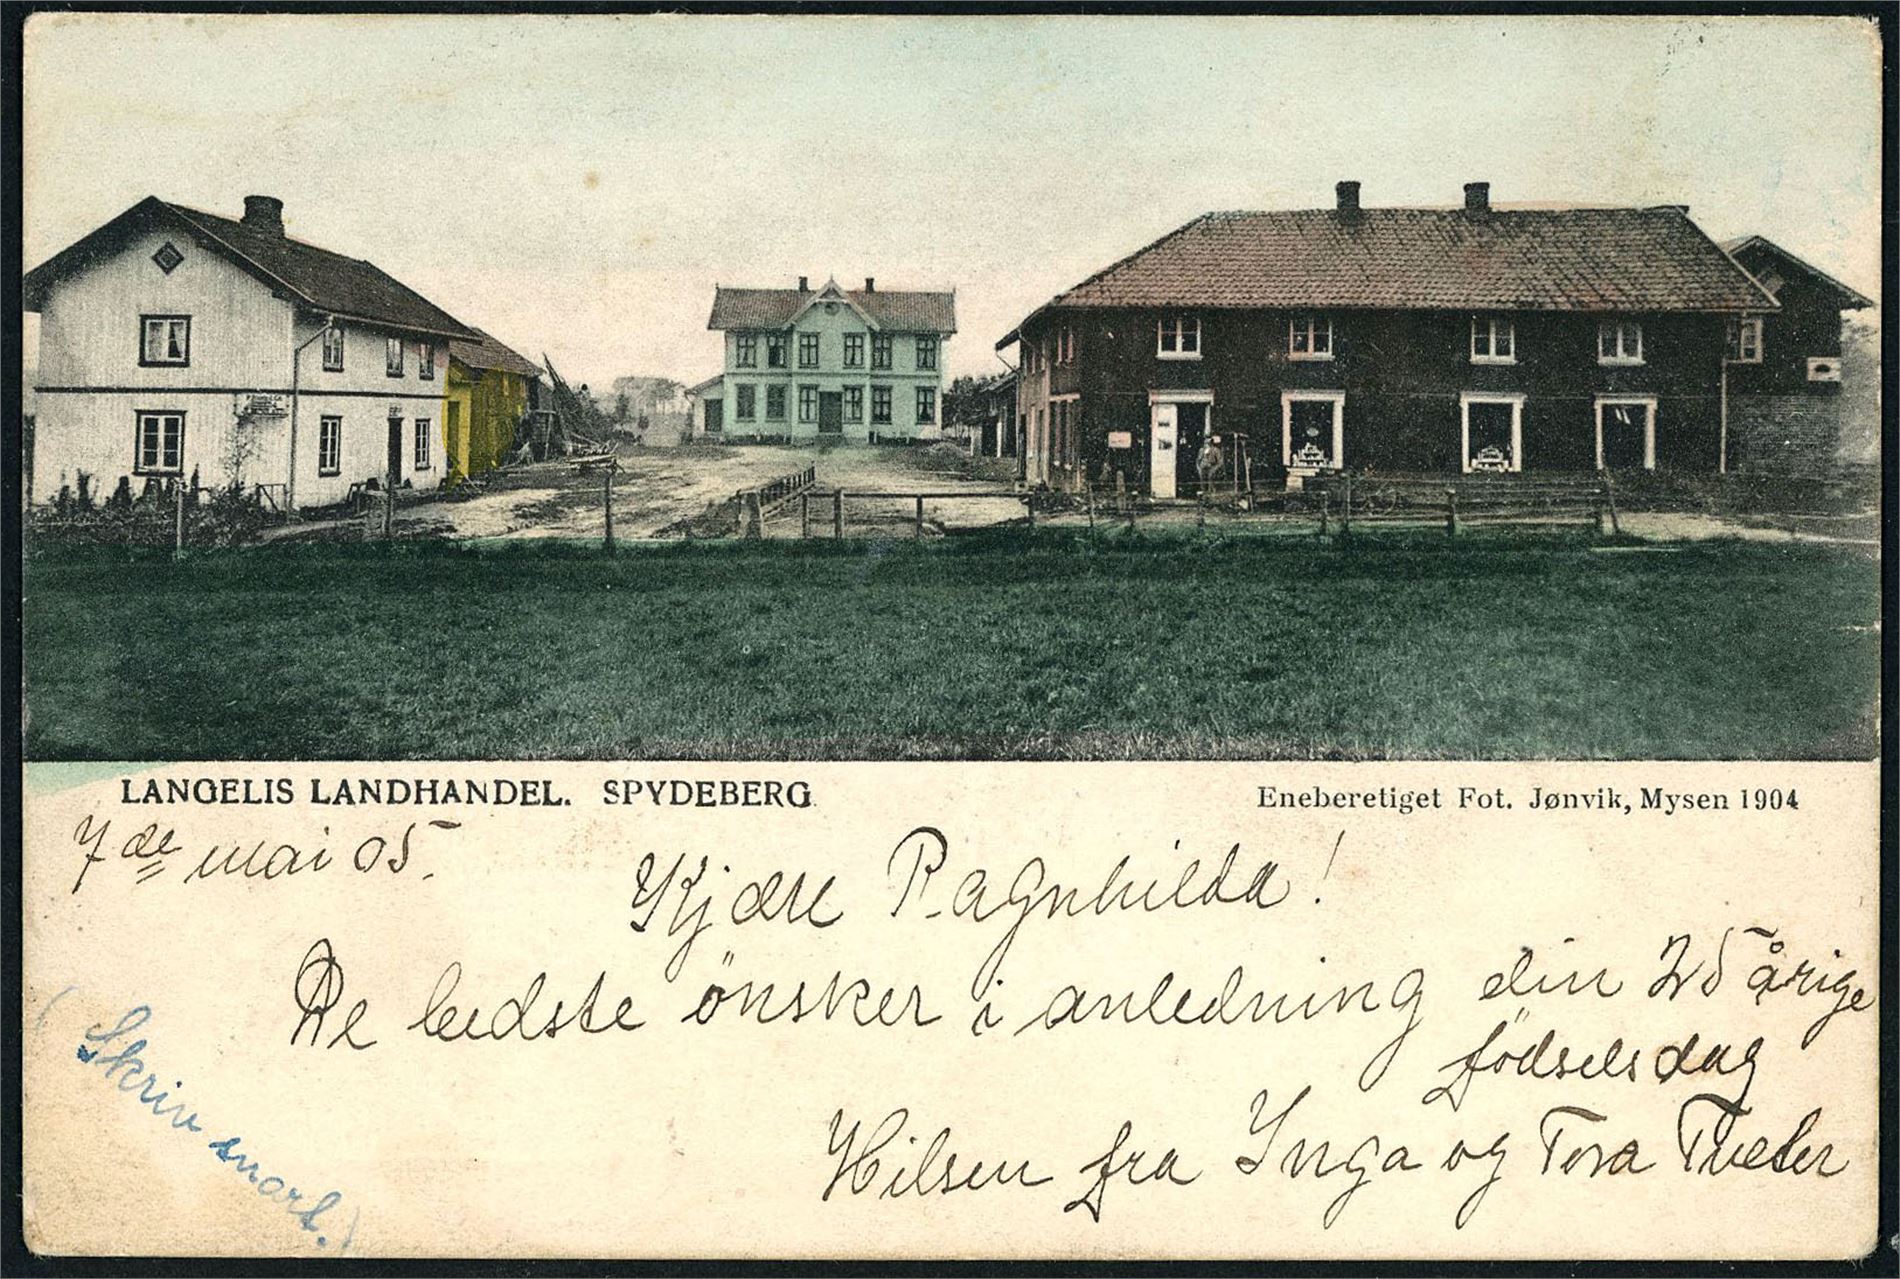 LANGELIS LANDHANDEL. SPYDEBERG
Eneberetiget Fot. Jønvik, Mysen 1904
7de mai 05.
Kjære Ragnhilda!
De bedste önsker i anledning din 25 årige
födselsdag
Hilsen fra Inga og Tora Tveter
(Skriv snart.)